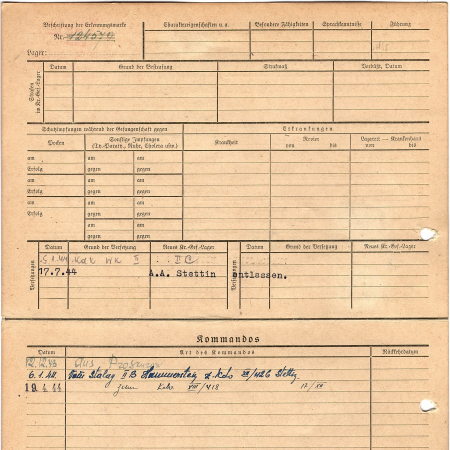 Beschriftung der Erkennungsmarke
Nr.
Lager:
Charaktereigenschaften u. a.
Besondere Fähigkeiten
Sprachkenntnisse
Führung
Strafen im Kr.-Gef.-Lager
Datum
Grund der Bestrafung
Strafmaß
Verbüßt, Datum
Schutzimpfungen während der Gefangenschaft gegen
Erkrankungen
Pocken
Sonstige Impfungen
(Ty.-Paraty., Ruhr, Cholera usw.)
Krankheit
Revier
von bis
Lazarett — Krankenhaus
von bis
am am am
Erfolg gegen gegen
am am am
Erfolg gegen gegen
am am am
Erfolg gegen gegen
am am
gegen gegen
Versetzungen
Datum
Grund der Versetzung
Neues Kr.-Gef.-Lager
Versetzungen
Datum
Grund der Versetzung
Neues Kr.-Gef.-Lager
II B
17.7.44 A.A. Stettin entlassen.
Kommandos
Datum
Art des Kommandos
Rückkehrdatum
12.12.43 aus
6.1.44. Stalag II B Hammerstein z. Kdo VII/426 Stettin
19.4.44 zum Kdo VIII/418